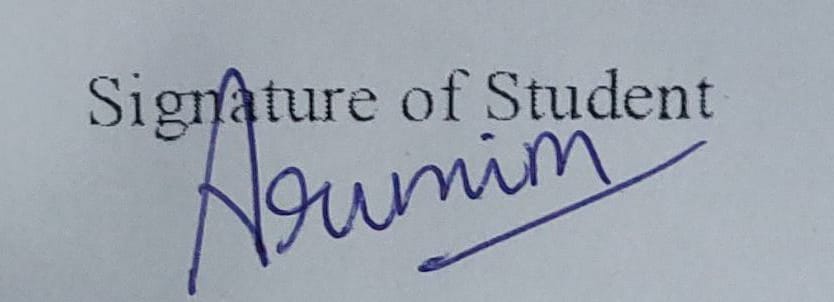 Signature of Student
Arunim